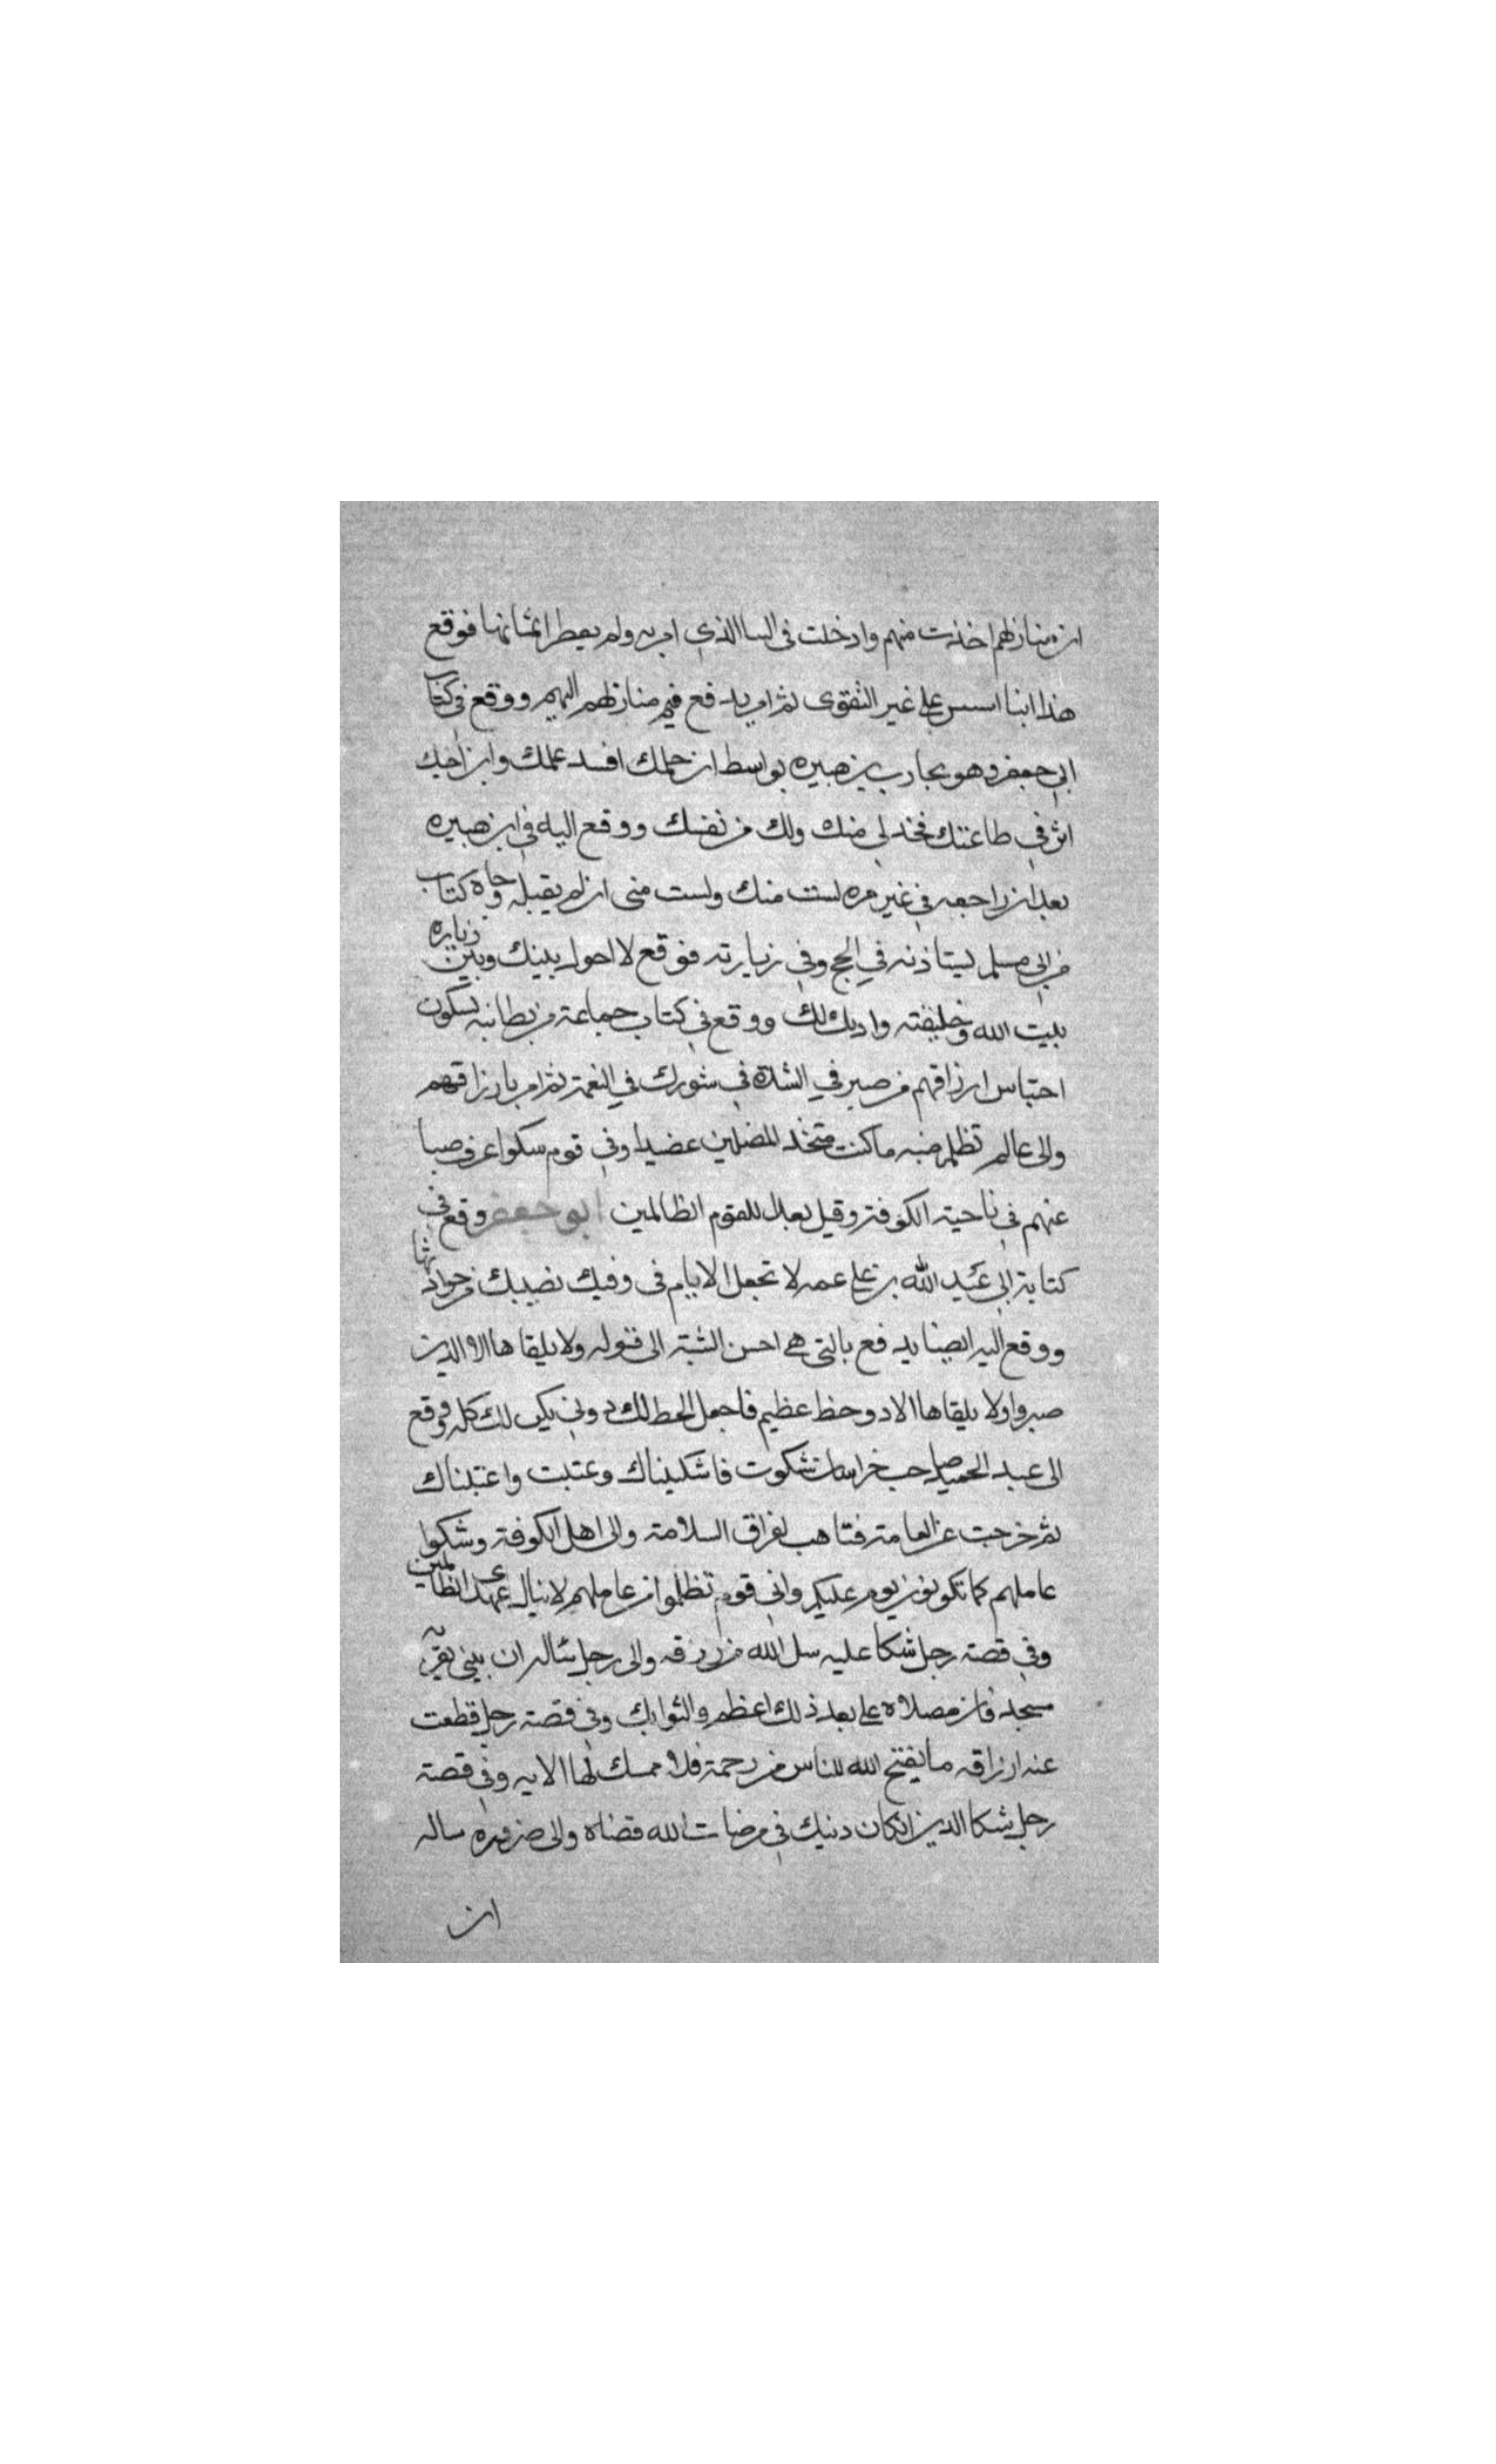 ان منازلهم اخذت منهم وادخلت فى البنا الذي امر به ولم يعطوا اثمانها فوقع
هذا ابنا اسس على غير التقوى ثم امر بدفع قيم منازلهم اليهم ووقع فى كتاب
ابى جعفر وهو يحارب بن هبيره بواسط ان حلمك افسد عملك وان اخيك
اثر في طاعتك فخذ لى منك ولك من نفسك ووقع اليه في ابن هبيره
بعد ان راجعه في غير مره لست منك ولست منى ان لم يقبله وجاه كتاب
من ابى مسلم ليستاذنه في الحج وفى زيارته فوقع لا احول بينك وبين زياره
بيت الله وخليفته واديك لك ووقع فى كتاب جماعة من بطانته يشكون
احتباس ارزاقهم من صبر في الشدة فى شورك في النعمة ثم امر بارزاقهم
والى عالم تظلم منه ما كنت متخذ المضلين عضدا وفى قوم سكوا عرف صبا
عنهم فى ناحية الكوفة وقيل بعدا للقوم الظالمين ابو جعفر وقع فى
كتابة الى عبد الله بن على عمه لا تجعل الايام فى وفيك نصيبك من حوادثها
ووقع اليه ايضا يدفع بالتى هى احسن الشبة الى قوله ولا يلقاها الا الذين
صبروا ولا يلقاها الا ذو حظ عظيم فاجعل الحظ لك دونى يكن لك كله ووقع
الى عبد الحميد صاحب خراسان شكوت فاشكيناك وعتبت واعتبناك
ثم خرجت عن العامة فتاهب لفراق السلامة والى اهل الكوفة وشكوا
عاملهم كما تكونون يومر عليكم وفى قوم تظلموا من عاملهم لا ينال عهدى الظالمين
وفى قصة رجل شكا عليه سل الله من رزقه والى رجل ساله ان يبنى بقربه
مسجد فان مصلاه على بعد ذلك اعظم لثوابك وفى قصة رجل قطعت
عنه ارزاقه ما يفتح الله للناس من رحمة فلا ممسك لها الايه وفى قصة
رجل شكا الدين ان كان دنيك فى مرضات الله قضاه والى ضروره ساله
ان